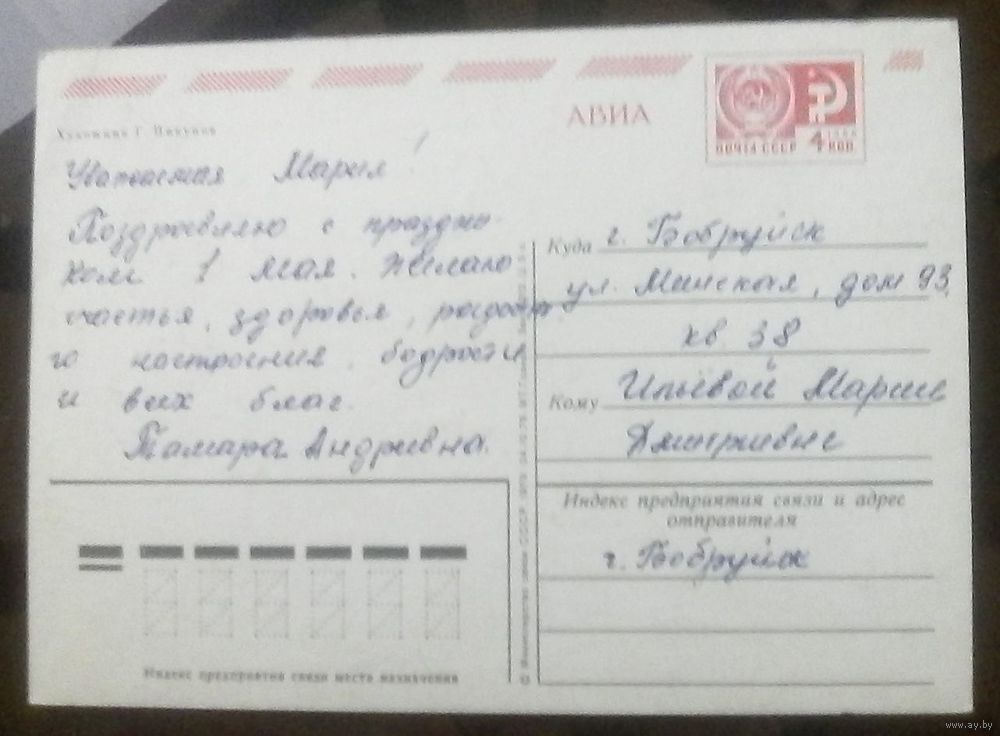 АВИА
ПОЧТА СССР 4 КОП
Художник Г.
Уважаемая Мария!
Поздравляю с праздни-
ком 1 Мая. Желаю
счастья, здоровья,
го настроения, бодрости
и всех благ.
Тамара Андривна.
Куда г. Бобруйск
ул. Минская, дом 93,
кв 38
Кому Ильевой Марие
Дмитривне
Индекс предприятия связи и адрес
отправителя
г. Бобруйск
Индекс предприятия связи места назначения
© Министерство связи СССР
www.ay.by